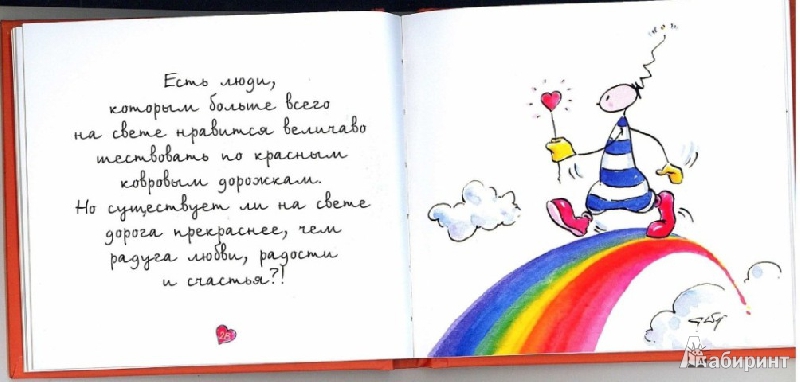 Есть люди,
которым больше всего
на свете нравится величаво
шествовать по красным
ковровым дорожкам.
Но существует ли на свете
дорога прекраснее, чем
радуга любви, радости
и счастья?!
Лабиринт